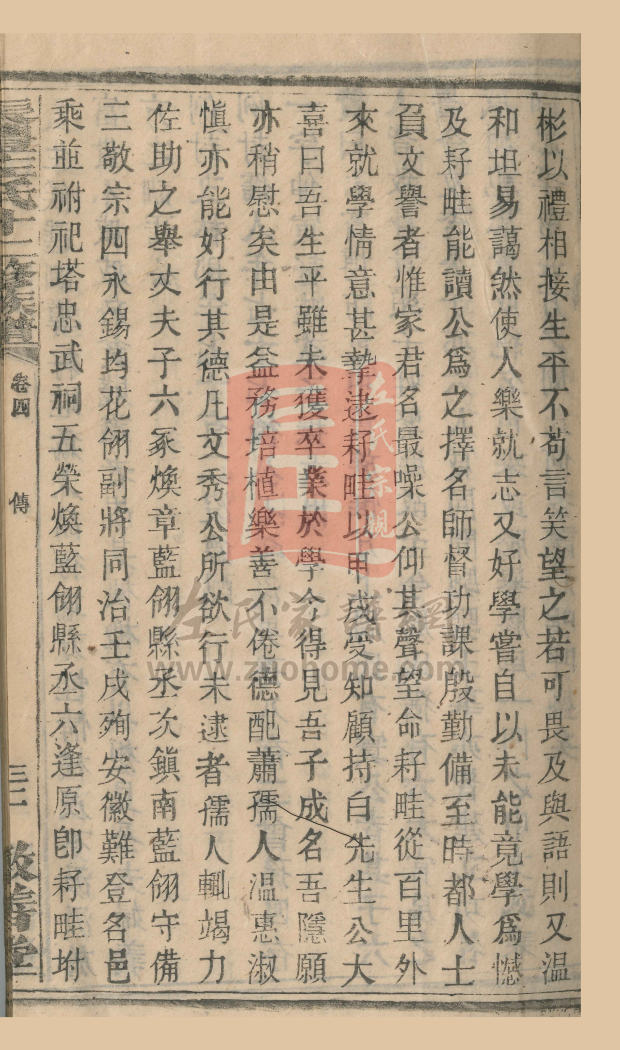 彬以禮相接生平不苟言笑望之若可畏及與語則又溫
和坦易藹然使人樂就志又好學嘗自以未能竟學爲憾
及耔畦能讀公爲之擇名師督功課殷勤備至時都人士
負文譽者惟家君名最噪公仰其聲望命耔畦從百里外
來就學情意甚摯逮耔畦以甲戌受知顧持白先生公大
喜曰吾生平雖未獲卒業於學今得見吾子成名吾隱願
亦稍慰矣由是益務培植樂善不倦德配蕭孺人溫惠淑
愼亦能好行其德凡文秀公所欲行未逮者孺人輒竭力
佐助之舉丈夫子六冢煥章藍翎縣丞次鎭南藍翎守備
三敬宗四永錫均花翎副將同治壬戌殉安徽難登名邑
乘並祔祀塔忠武祠五榮煥藍翎縣丞六逢原卽耔畦坿
氏十二修族譜
卷四
傳
三二
敬書堂
左氏宗親
左氏家譜網
www.zuohome.com